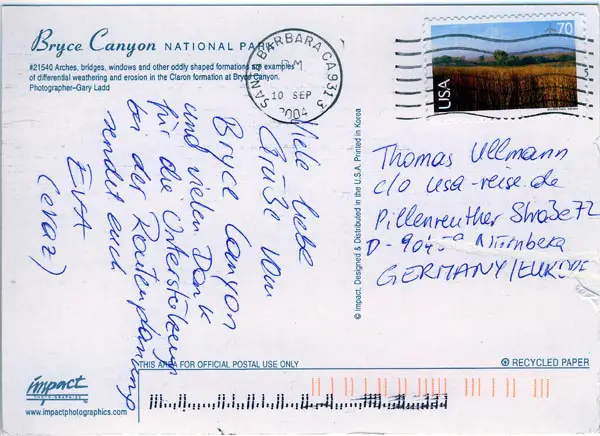 Bryce Canyon NATIONAL PARK
#21540 Arches, bridges, windows and other oddly shaped formations are examples
of differential weathering and erosion in the Claron formation at Bryce Canyon.
Photographer–Gary Ladd
SANTA BARBARA CA 931 3
PM
10 SEP
2004
70
USA
Viele liebe
Grüße vom
Bryce Canyon
und vielen Dank
für die Unterstützung
bei der Routenplanung
sendet euch
EVA
(cevaz)
© Impact, Designed & Distributed in the U.S.A. Printed in Korea
Thomas Ullmann
c/o usa-reise.de
Pillenreuther Straße 72
D- Nürnberg
GERMANY/EUROPE
THIS AREA FOR OFFICIAL POSTAL USE ONLY
RECYCLED PAPER
impact
PHOTOGRAPHICS
www.impactphotographics.com